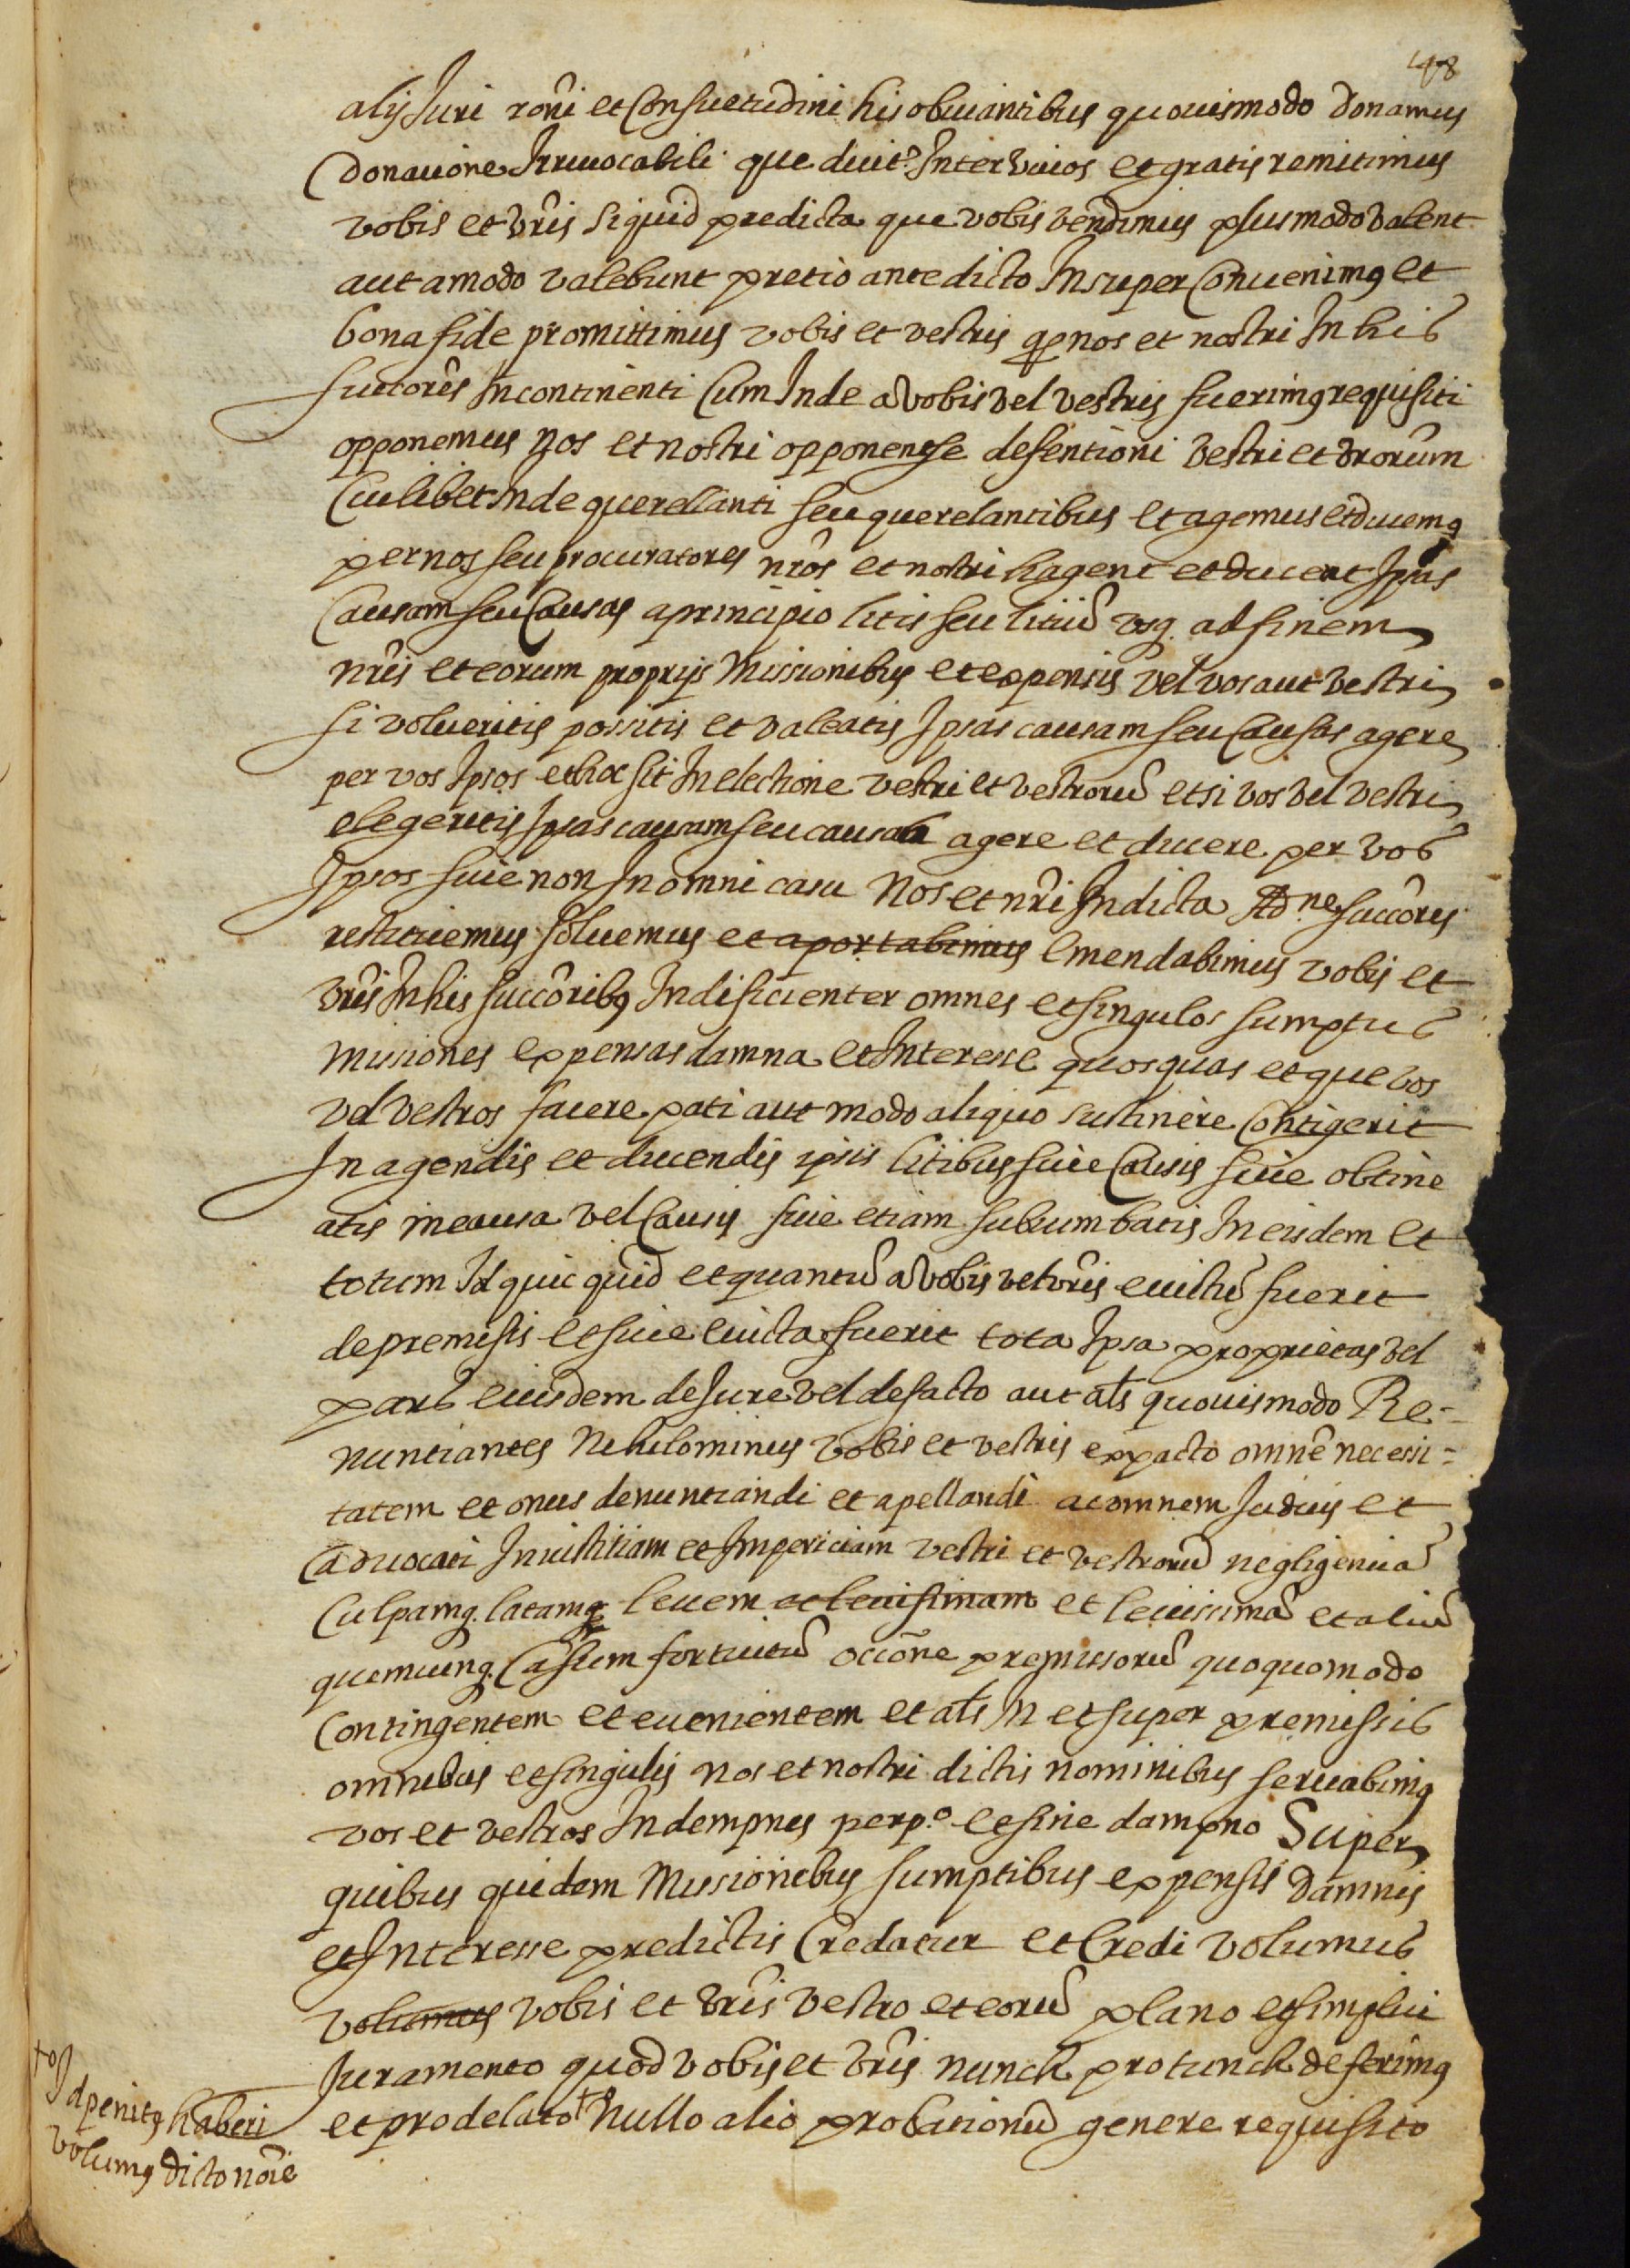 48
alijs Juri roni et Consuetudini his obviantibus quovismodo donamus
donatione Irrevocabili que dicit.r Inter vivos et gratis remitimus
vobis et vris siquid predicta que vobis vendimus plus modo valent
aut amodo valebunt pretio antedicto Insuper Convenimq et
bona fide promittimus vobis et vestris q nos et nostri In his
succores Incontinenti Cum Inde a vobis vel vestris fuerimq requisiti
opponemus nos et nostri opponent se defentioni vestri et vrorum
Cuilibet Inde querellanti seu querelantibus et agemus et ducemq
per nos seu procuratores nros et nostri hagent et ducent Ipsas
Causam seu Causas a principio litis seu litiu usq. ad finem
nris et eorum proprijs Missionibus et expensis vel vos aut vestri
si volueritis possitis et valeatis Ipsas causam seu Causas agere
per vos Ipsos et hoc sit In electione vestri et vestroru et si vos vel vestri
elegeritis Ipsas causam seu causas agere et ducere per vos
Ipsos sive non In omni casu Nos et nri In dicta Ad.ne succores
restituemus solvemus et aportabimus emendabimus vobis et
vris In his succoribq Indificienter omnes et singulos sumptus
Missiones expensas damna et Interesse quos quas et que vos
vel vestros facere pati aut modo aliquo sustinere Contigerit
In agendis et ducendis ipsis litibus sive Causis sive obtine
atis in causa vel Causis sive etiam subcumbatis In eisdem et
totum Id quicquid et quantu a vobis vel vris evictu fuerit
de premisis et sive evicta fuerit tota Ipsa proprietas vel
pars eiusdem de Jure vel de facto aut als quovismodo Re-
nuntiantes Nihilominus vobis et vestris ex pacto omne necessi-
tatem et onus denuntiandi et apellandi ac omnem Judicis et
advocati Iniustitiam et Impericiam vestri et vestroru negligencia
Culpamq. latamq levem et levissimam et levissima et aliu
quemcunq. Casum fortuitu occone premissoru quoquomodo
Contingentem et evenientem et als In et super premissis
omnibus et singulis nos et nostri dictis nominibus servabimq
vos et vestros Indempnes perp.o et sine dampno Super
quibus quidem Missionibus sumptibus expensis damnis
et Interesse predictis Credatur et Credi volumus
volumus vobis et vris vestro et eoru plano et simplici
Juramento quod vobis et vris nunch pro tunch deferimq
et pro delato to nullo alio probationu genere requisito
to Id penitq haberi
volumq dicto noie